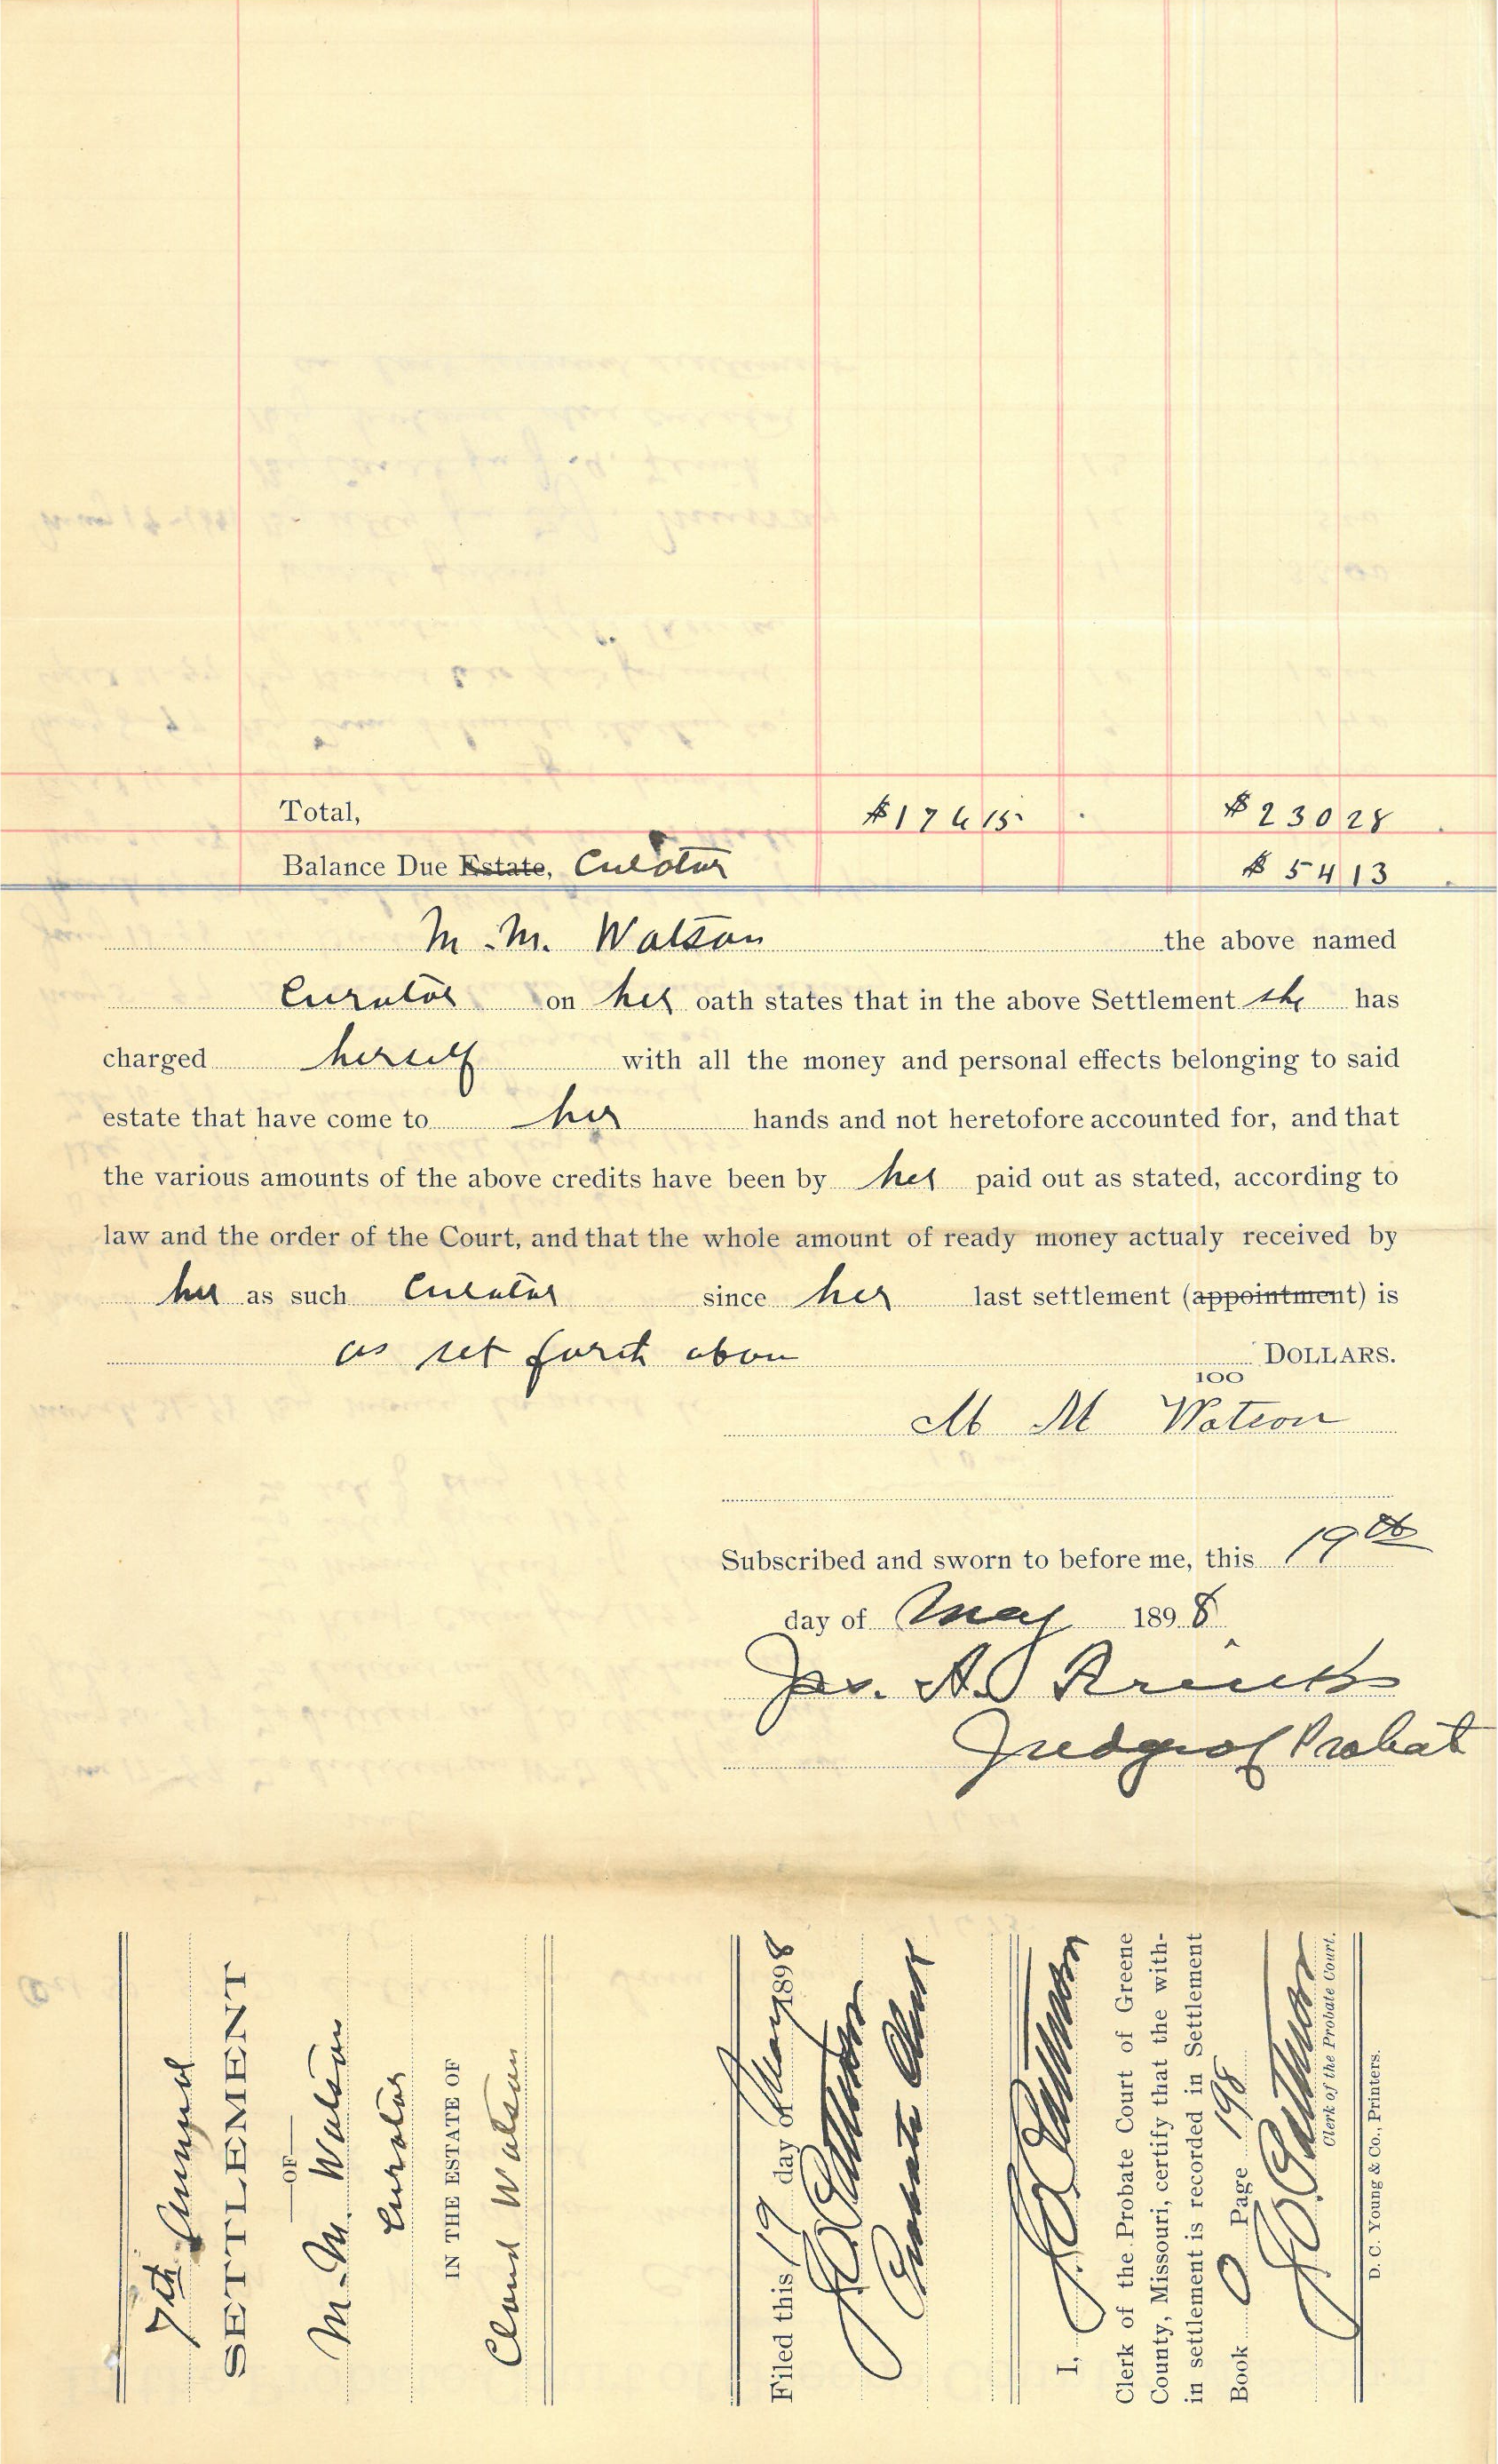 Total, $176 15 $230 28
Balance Due Estate, Curator $54 13
M. M. Watson the above named
Curator on her oath states that in the above Settlement she has
charged herself with all the money and personal effects belonging to said
estate that have come to her hands and not heretofore accounted for, and that
the various amounts of the above credits have been by her paid out as stated, according to
law and the order of the Court, and that the whole amount of ready money actualy received by
her as such Curator since her last settlement (appointment) is
as set forth above DOLLARS.
100
M M Watson
Subscribed and sworn to before me, this 19th
day of May 1898
Jas. A.
Judge of Probate
7th Annual
SETTLEMENT
—OF—
M. M. Watson
Curator
IN THE ESTATE OF
Claud Watson
Filed this 19 day of May 1898
Probate Clerk
I,
Clerk of the Probate Court of Greene
County, Missouri, certify that the with-
in settlement is recorded in Settlement
Book O Page 198
Clerk of the Probate Court.
D. C. Young & Co., Printers.